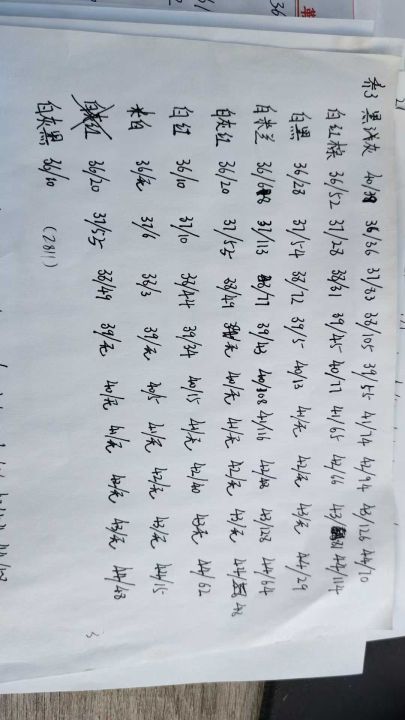 黑浅灰 40/38 36/36 37/33 38/105 39/55 41/74 42/94 43/126 44/70
白红棕 36/52 37/28 38/31 39/45 40/77 41/65 42/66 44/114
白黑 36/28 37/54 38/72 39/5 40/13 41/无 42/无 43/无 44/29
白米兰 37/113 38/77 39/43 40/108 41/116 42/48 43/128 44/64
白灰红 36/20 37/55 38/49 39/无 40/无 41/无 42/无 43/无 44/48
白红 36/10 37/10 38/44 39/34 40/15 41/无 42/40 43/无 44/62
米白 36/无 37/6 38/3 39/无 40/5 41/无 42/无 43/无 44/15
白灰红 36/20 37/55 38/49 39/无 40/无 41/无 42/无 43/无 44/48
白灰黑 36/10 (2811)
3